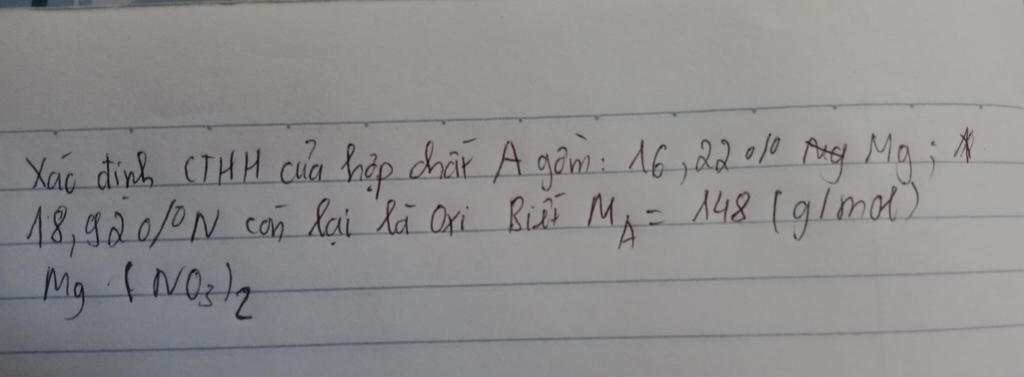 Xác định CTHH của hợp chất A gồm: 16,22% Mg;
18,92%N còn lại là oxi Biết M_A = 148 (g/mol)
Mg (NO₃)₂